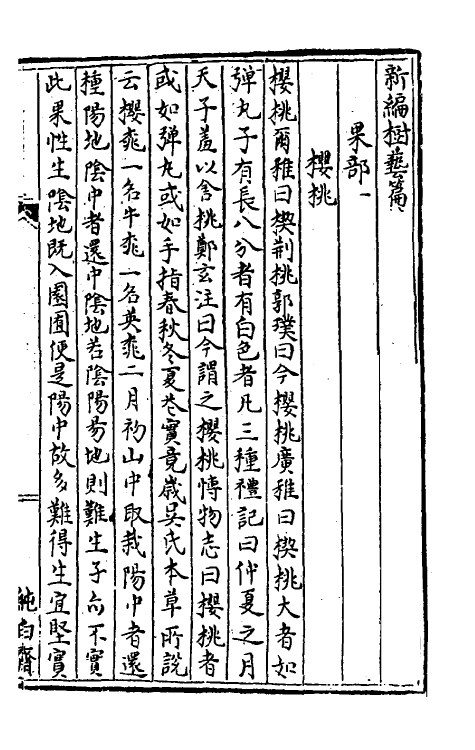 新編樹藝篇
果部一
櫻桃
櫻桃爾雅曰楔荆桃郭璞曰今櫻桃廣雅曰楔桃大者如
弹丸子有長八分者有白色者凡三種禮記曰仲夏之月
天子羞以含桃鄭玄注曰今謂之櫻桃愽物志曰櫻桃者
或如弹丸或如手指春秋冬夏花實竟歲吳氏本草所說
云櫻桃一名牛桃一名英桃二月初山中取栽陽中者還
種陽地陰中者還中陰地若陰陽易地則難生子亦不實
此果性生陰地既入園囿便是陽中故多難得生宜堅實
純白齋